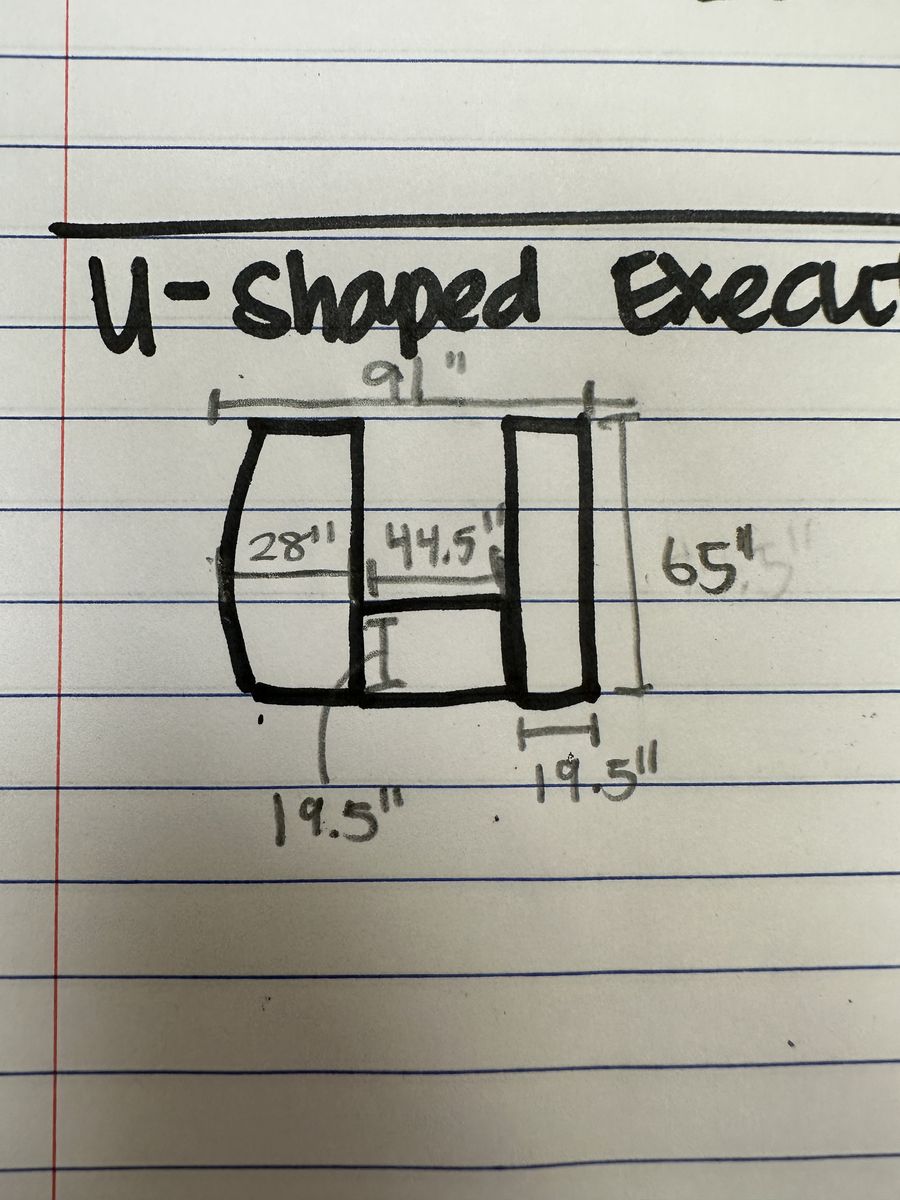 U-Shaped Execut
91"
28" 44.5"
65"
19.5"
19.5"